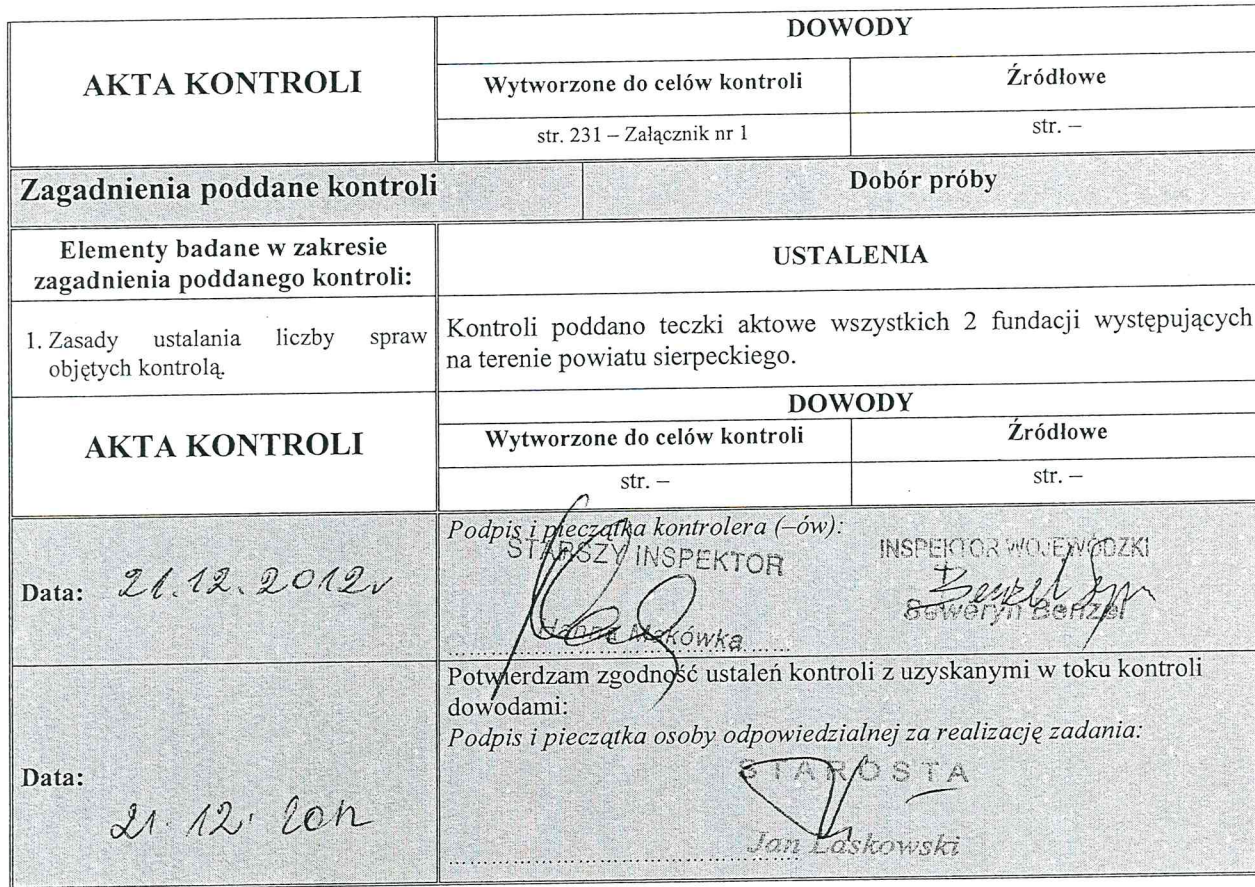 DOWODY
AKTA KONTROLI
Wytworzone do celów kontroli
Źródłowe
str. 231 – Załącznik nr 1
str. –
Zagadnienia poddane kontroli
Dobór próby
Elementy badane w zakresie
zagadnienia poddanego kontroli:
USTALENIA
1. Zasady ustalania liczby spraw
objętych kontrolą.
Kontroli poddano teczki aktowe wszystkich 2 fundacji występujących
na terenie powiatu sierpeckiego.
DOWODY
AKTA KONTROLI
Wytworzone do celów kontroli
Źródłowe
str. –
str. –
Podpis i pieczątka kontrolera (–ów):
STARSZY INSPEKTOR
INSPEKTOR WOJEWÓDZKI
Data: 21.12.2012r
Hanna Makówka
Seweryn Benzel
Potwierdzam zgodność ustaleń kontroli z uzyskanymi w toku kontroli
dowodami:
Podpis i pieczątka osoby odpowiedzialnej za realizację zadania:
STAROSTA
Data:
21.12.2012
Jan Laskowski